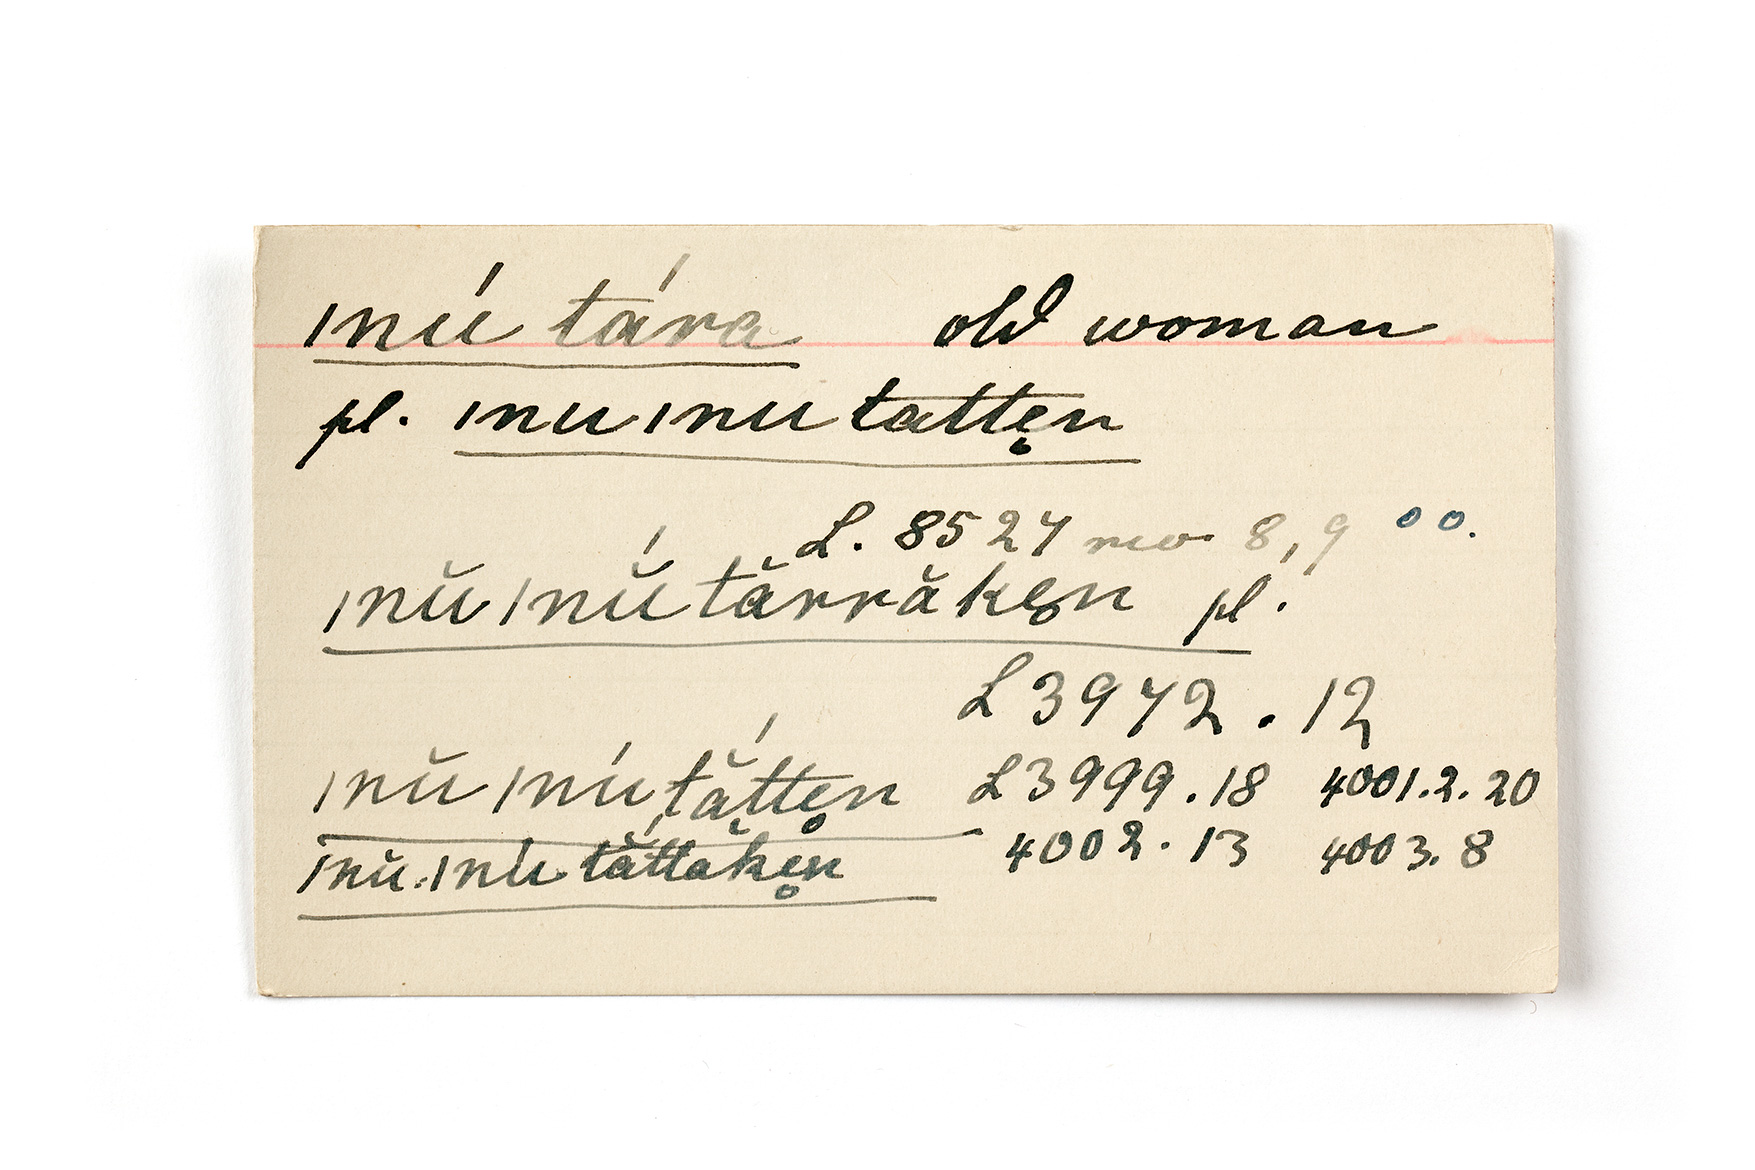 ınú tára old woman
pl. ınuınutattẹn
L. 8527 rev 8,9 oo.
ınŭınŭ́tărrăkẹn pl.
L 3972.12
ınŭınú́tắttẹn L3999.18 4001.2.20
ınŭ.ınŭ́tắttăkẹn 4002.13 4003.8